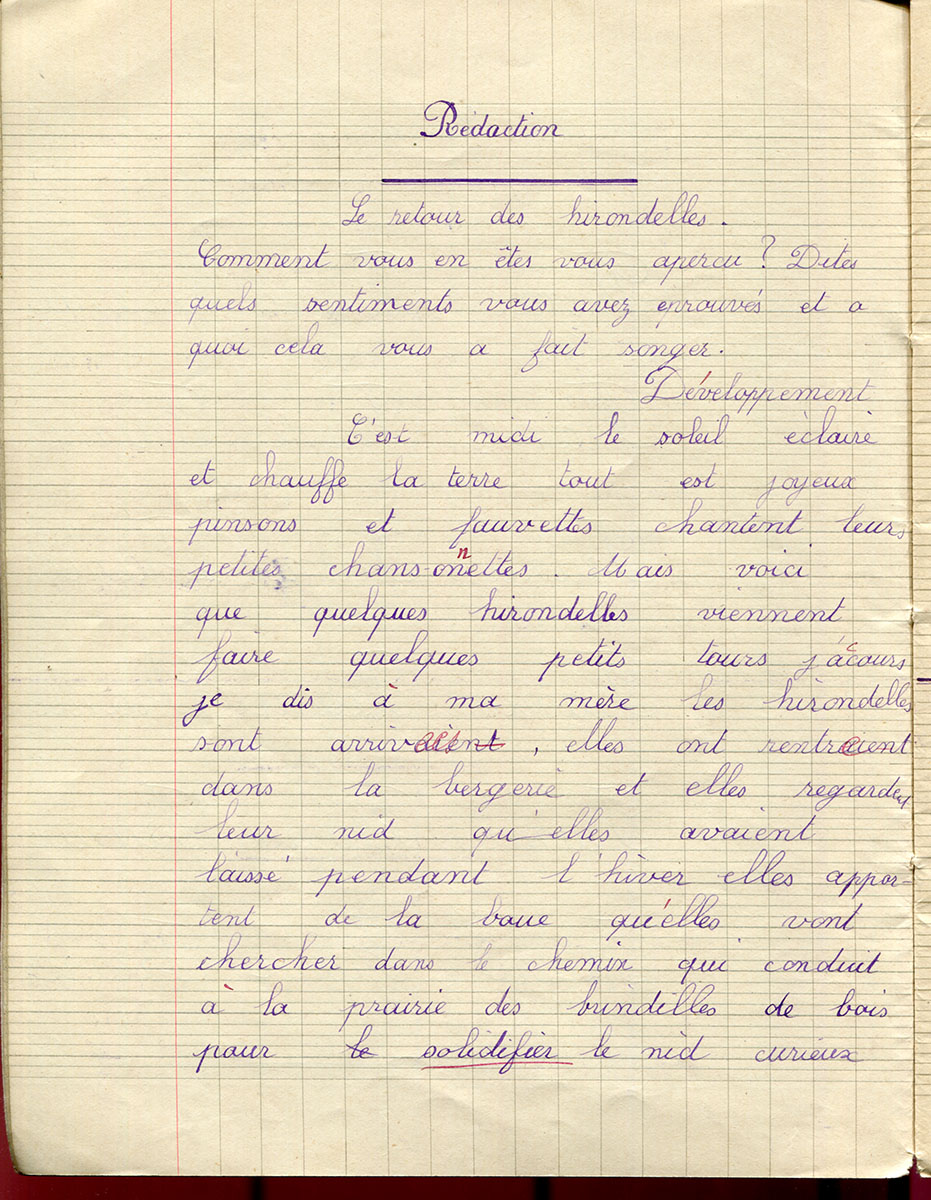 Rédaction
Le retour des hirondelles.
Comment vous en êtes vous aperçu ? Dites
quels sentiments vous avez éprouvés et a
quoi cela vous a fait songer.
Développement
C'est midi le soleil éclaire
et chauffe la terre tout est joyeux
pinsons et fauvettes chantent leurs
petites chansonnettes. Mais voici
que quelques hirondelles viennent
faire quelques petits tours j'accours
je dis à ma mère les hirondelles
sont arrivées, elles ont rentraient
dans la bergerie et elles regardent
leur nid qu'elles avaient
laissé pendant l'hiver elles appor-
tent de la boue qu'elles vont
chercher dans le chemin qui conduit
à la prairie des brindilles de bois
pour le solidifier le nid curieux